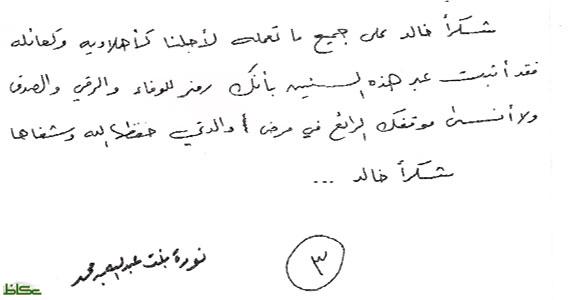 شكراً خالد على جميع ما تعمله لأجلنا كأهلاويه وكعائله
فقد أثبت عبر هذه السنين بأنك رمز للوفاء والرقي والصدق
ولا أنسى موقفك الرائع في مرض والدتي حفظك الله وشفاها
شكراً خالد ...
٣
نورة بنت عبدالله محمد
عكاظ